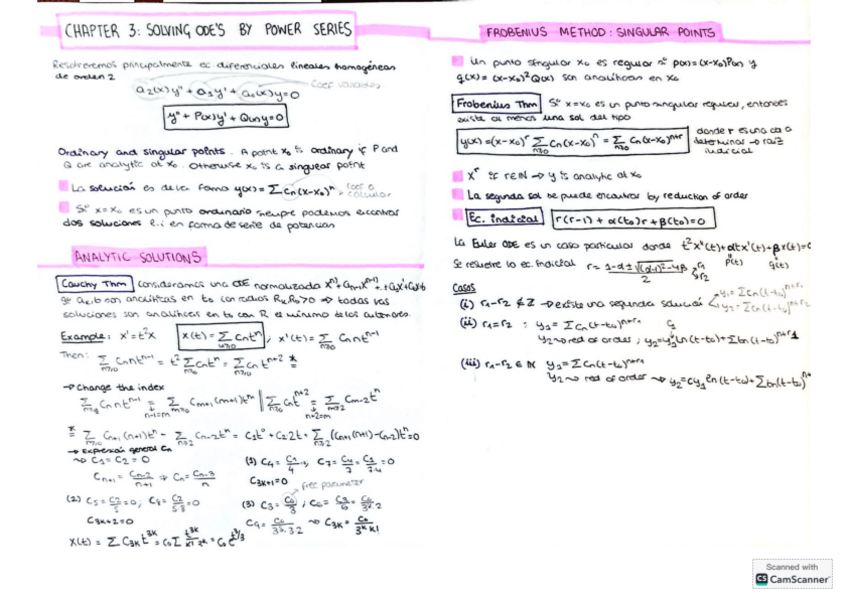 CHAPTER 3: SOLVING ODE'S BY POWER SERIES
Resolveremos principalmente ec diferenciales lineales homogéneas
de orden 2
a₂(x)y'' + a₁y' + a₀(x)y=0
y'' + P(x)y' + Q(x)y=0
Ordinary and singular points. A point x₀ is ordinary if P and
Q are analytic at x₀. Otherwise x₀ is a singular point
La solución es de la forma y(x) = Σ Cn(x-x₀)ⁿ
Si x=x₀ es un punto ordinario siempre podemos encontrar
dos soluciones l.i en forma de serie de potencias
ANALYTIC SOLUTIONS
Cauchy Thm Consideramos una ODE normalizada
todas las
soluciones son analíticas en t₀ con R el mínimo de los anteriores.
Example: x' = t²x x(t) = Σ Cn tⁿ , x'(t) = Σ Cn n tⁿ⁻¹
Then: Σ Cn n tⁿ⁻¹ = t² Σ Cn tⁿ = Σ Cn tⁿ⁺² *
→ Change the index
Σ Cn n tⁿ⁻¹ = Σ Cm+1 (m+1) tᵐ || Σ Cn tⁿ⁺² = Σ Cm-2 tᵐ
n-1=m n+2=m
* = Σ Cn+1 (n+1)tⁿ - Σ Cn-2 tⁿ = C₁t⁰ + C₂2t + Σ (Cn+1(n+1) - Cn-2)tⁿ = 0
→ Expresión general Cn
C₁ = C₂ = 0
Cn+1 = Cn-2/n+1 ⇒ Cn = Cn-3/n
(1) C₄ = C₁/4, C₇ = C₄/7 = C₁/7·4 = 0
C3k+1 = 0
(2) C₅ = C₂/5 = 0, C₈ = C₂/5·8 = 0
C3k+2 = 0
free parameter
(3) C₃ = C₀/3, C₆ = C₃/6 = C₀/3²·2
C₉ = C₀/3³·3·2 → C3k = C₀/3ᵏ k!
x(t) = Σ C3k t³ᵏ = C₀ Σ t³ᵏ/k! 3ᵏ = C₀ e^t³/3
FROBENIUS METHOD: SINGULAR POINTS
Un punto singular x₀ es regular si p(x) = (x-x₀)P(x) y
q(x) = (x-x₀)²Q(x) son analíticas en x₀
Frobenius Thm Si x=x₀ es un punto singular regular, entonces
existe al menos una sol del tipo
y(x) = (x-x₀)ʳ Σ Cn(x-x₀)ⁿ = Σ Cn(x-x₀)ⁿ⁺ʳ
donde r es una cte a
determinar → raíz
indicial
xʳ if r∈ℕ → y is analytic at x₀
La segunda sol se puede encontrar by reduction of order
Ec. indicial r(r-1) + α(t₀)r + β(t₀) = 0
La Euler ODE es un caso particular donde t²x''(t) + αtx'(t) + βx(t) = 0
p(t) q(t)
Se resuelve la ec. indicial r = 1-α ± √(α-1)²-4β / 2
Casos
(i) r₁-r₂ ∉ ℤ → existe una segunda solución
(ii) r₁=r₂ : y₁ = Σ Cn(t-t₀)ⁿ⁺ʳ¹
y₂ → red of order; y₂ = y₁ ln(t-t₀) + Σ bn(t-t₀)ⁿ⁺ʳ¹
(iii) r₁-r₂ ∈ ℕ y₁ = Σ Cn(t-t₀)ⁿ⁺ʳ¹
y₂ → red of order → y₂ = Cy₁ ln(t-t₀) + Σ bn(t-t₀)
Scanned with
CS CamScanner